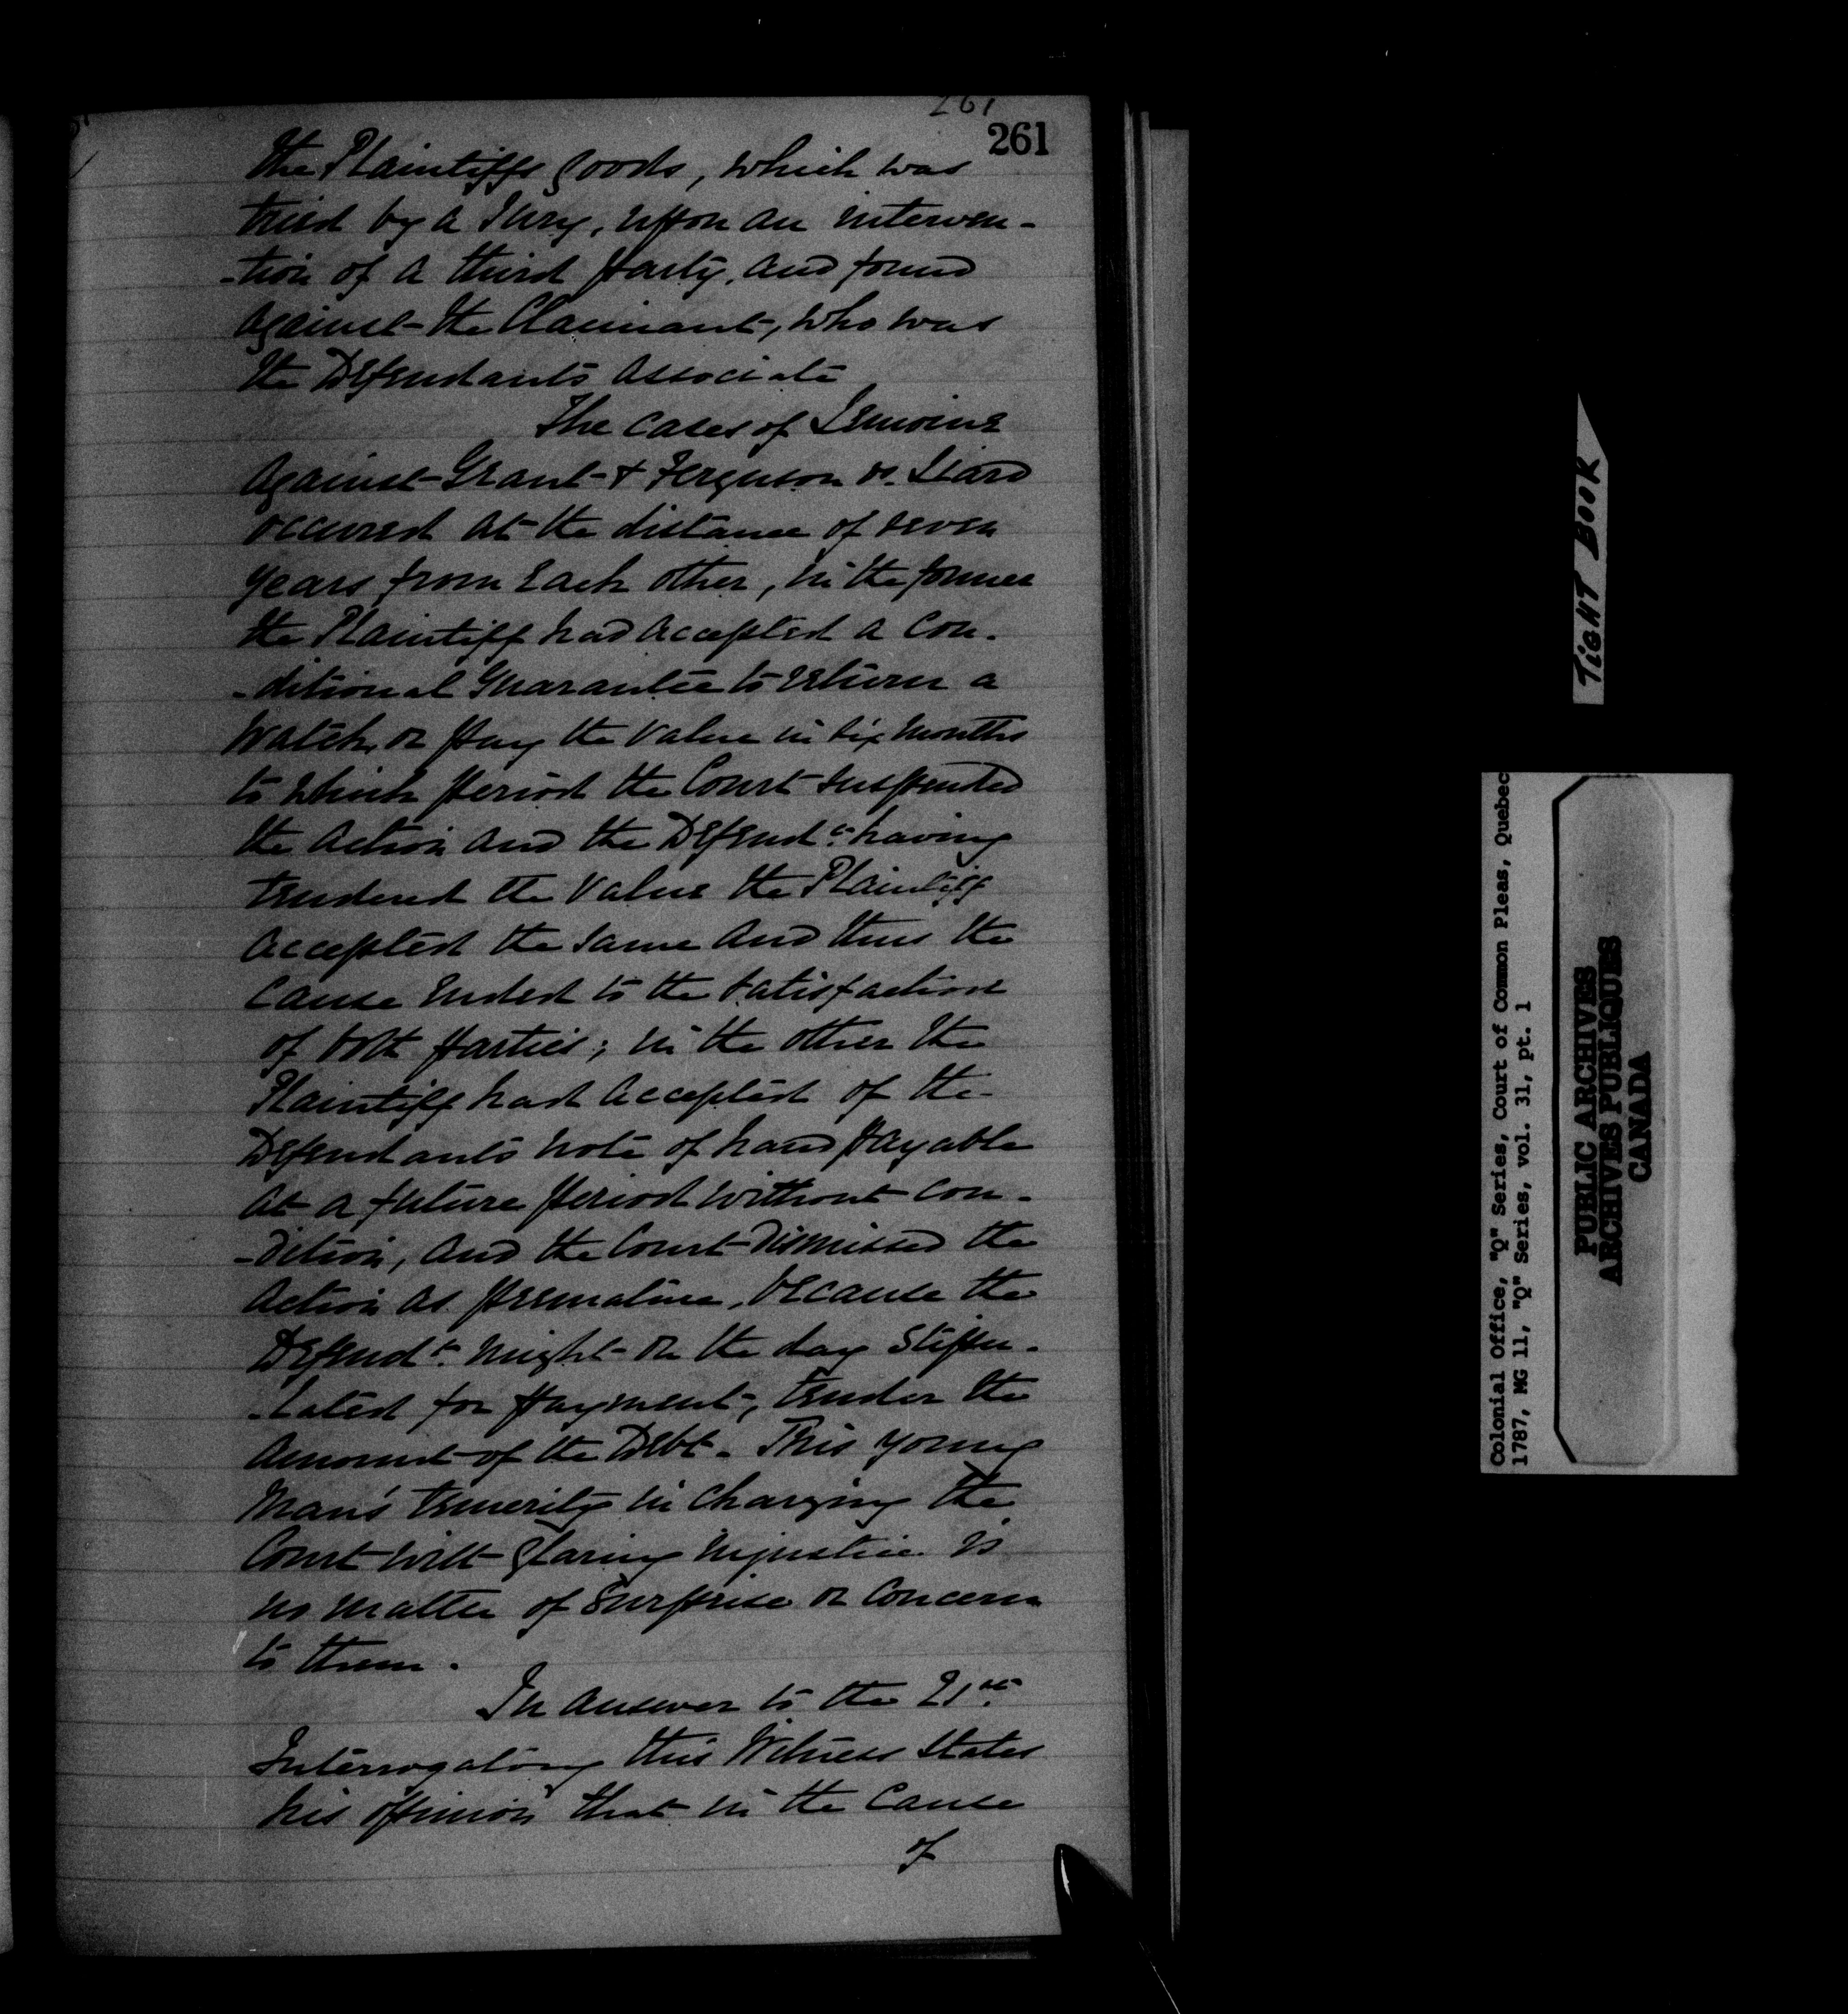 261
261
the Plaintiffs goods, which was
tried by a Jury, upon an interven-
-tion of a third party, and found
against the Claimant, who was
the Defendants associate
The cases of Lemoine
against Grant & Ferguson vs. Liard
occurred at the distance of seven
years from each other, in the former
the Plaintiff had accepted a con-
-ditional Guarantee to return a
Watch, or pay the value in six months
to which period the Court suspended
the action and the Defendt. having
tendered the value the Plaintiff
accepted the same and thus the
cause ended to the satisfaction
of both parties; in the other the
Plaintiff had accepted of the
Defendants note of hand payable
at a future period without con-
-dition, and the Court dismissed the
action as premature, because the
Defendt. might on the day stipu-
-lated for payment, tender the
amount of the Debt. This young
man's temerity in charging the
Court with glaring injustice is
no matter of surprise or concern
to them.
In answer to the 21st.
Interrogatory this Witness states
his opinion that in the Cause
of
TIGHT BOOK
Colonial Office, "Q" Series, Court of Common Pleas, Quebec
1787, MG 11, "Q" Series, vol. 31, pt. 1
PUBLIC ARCHIVES
ARCHIVES PUBLIQUES
CANADA